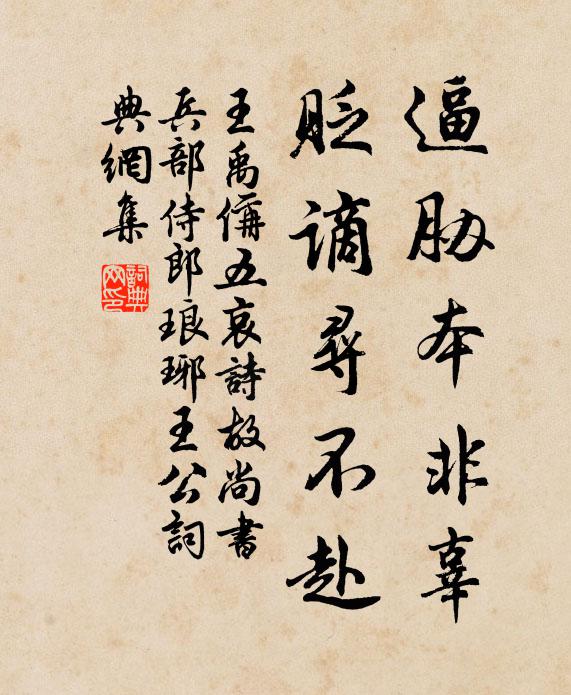 逼胁本非辜
贬谪寻不赴
王禹偁五哀詩故尚書
兵部侍郎琅琊王公詞
典網集
詞典
网印